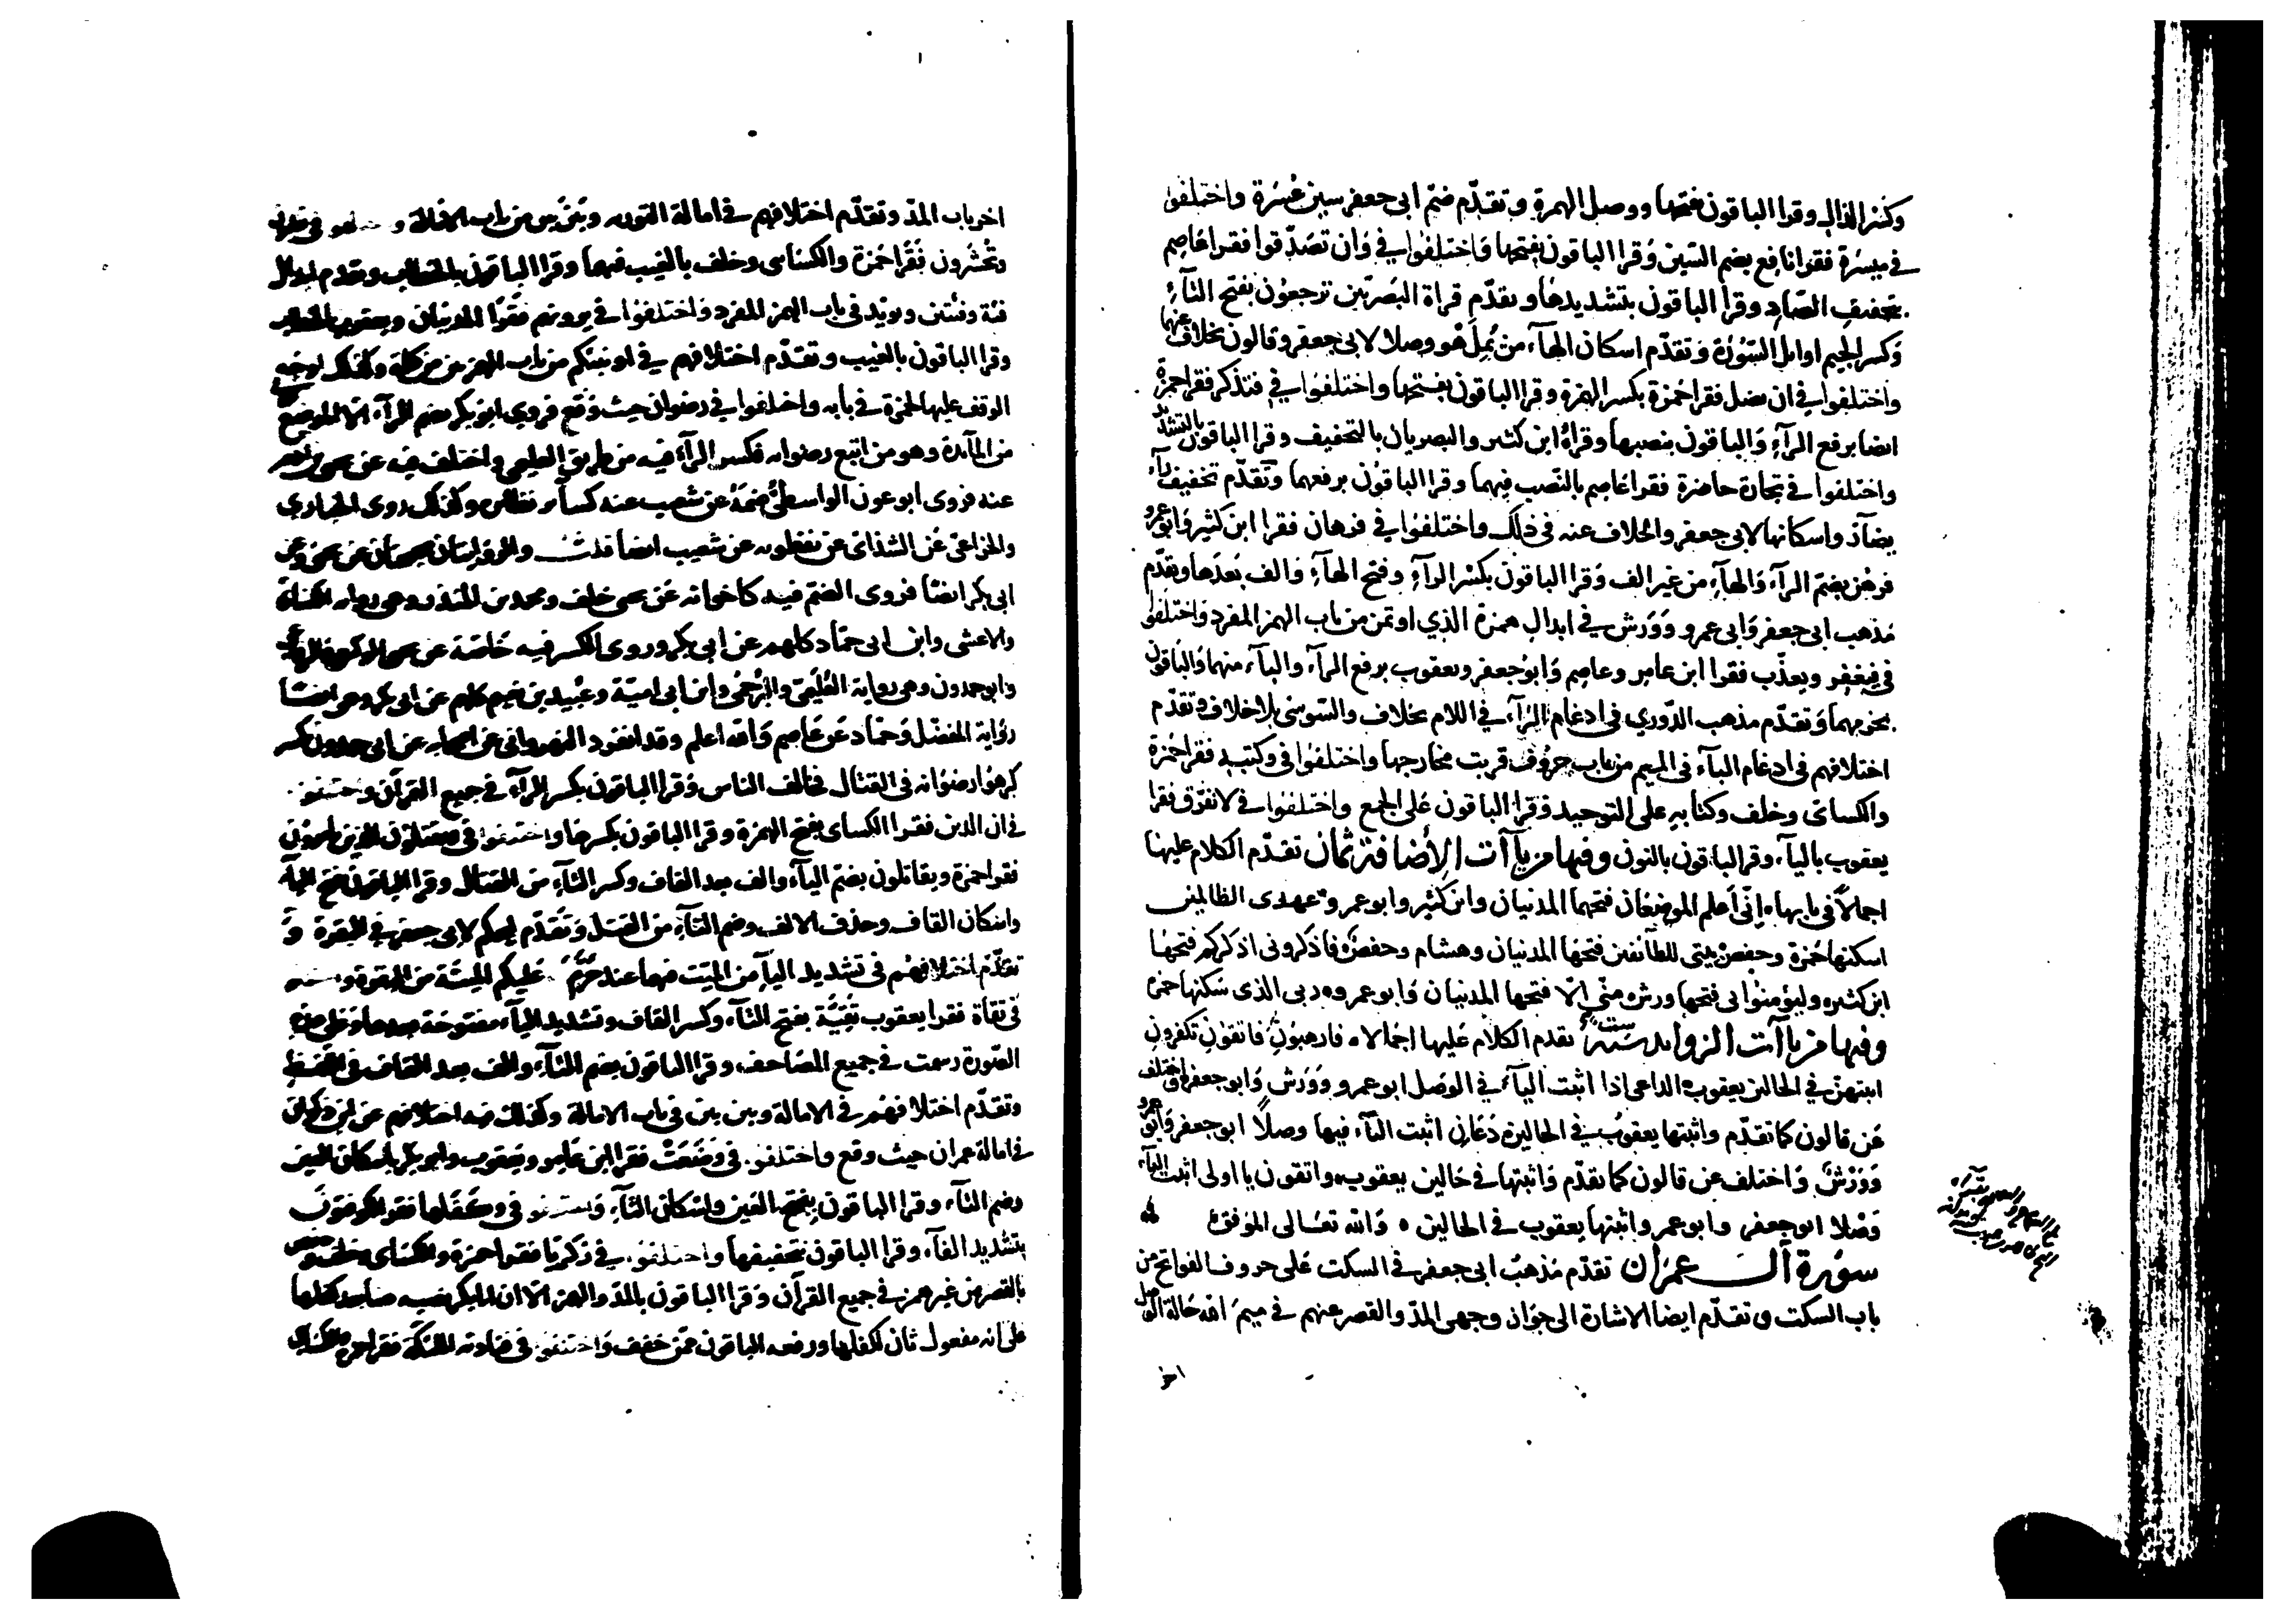 وكسر الذال وقرا الباقون بفتحها ووصل الهمزة وتقدّم ضمّ ابى جعفر سين عُسُرة واختلفوا
في ميسرة فقرا نافع بضم السّين وَقرا الباقون بفتحها وَاختلفوا في وَان تصَدّقوا فقرا عَاصِم
بتخفيف الصّادِ وقرا الباقون بتشديدهَا وتقدّم قراة البَصريّين ترجعُون بفتح التآءِ
وَكسر الجيم اوايل السّوُرة وَتقدّم اسكان الهآء من يُمِلّ هْو وصلا لابى جعفر وقالون بخلاف عنهما
واختلفوا في ان تضل فقرا حمزة بكسر الهمزة وقرا الباقون بفتحها واختلفوا في فتذكر فقرا حمزة
ايضا برفع الرآءِ وَالباقون بنصبها وقراهُ ابن كثير والبصريان بالتخفيف وقرا الباقون بالتشديد
واختلفوا في تجارة حاضرة فقرا عَاصِم بالنّصب فيهما وقرا الباقوُن برفعهما وَتقدّم تخفيف رآء
يضآرّ واسكانها لابى جعفر والخلاف عنه فى ذلك واختلفوُا في فرهان فقرا ابن كثير وَابو عمرو
فرهُن بضمّ الرآء وَالهآءِ من غير الف وَقرا الباقون بكسْر الرآءِ وفتح الهآءِ وَالف بَعدَها وتقدّم
مَذهب ابى جعفر وَابى عمرو وَوَرش في ابدال همزة الذي اوتمن من باب الهمز المفرد وَاختلفوا
في فيغفر ويعذّب فقرا ابن عامر وعاصِم وَابوُ جعفر ويعقوب برفع الرآء والبآء منهما وَالباقون
بجزمهما وَتقدّم مذهب الدّوري فى ادغام الرّآء في اللام بخلاف والسّوسىّ بلا خلاف وتقدّم
اختلافهم فى ادغام البآء فى الميم من باب حروُف قربت مخارجها واختلفوُا فى وكتبه فقرا حمزة
والكسائى وخلف وكتابهِ على التوحيد وَقرا الباقون عَلى الجمع واختلفوُا في لا نفرّق فقرا
يعقوب باليآء وقرا الباقون بالنون وفيها من يآآت الأضافة ثمان تقدّم الكلام عليها
اجمالاً فى بابهاه اِنّى أعلم الموضعَان فتحهما المدنيان وَابن كثير وابو عمر وه عهدى الظالمين
اسكنها حَمزة وحفصْ ه بيتى للطآئفين فتحَها المدنيان وهشام وحفصْ ه فاذكرونى اذكركم فتحهَا
ابن كثيره وليؤمنُوا بى فتحها ورش ه منّى اِلّا فتحها المدنيان وَابو عمرو ه ربى الذى سَكنها حمزة
وفيها من يآآت الزوايد ستّ تقدم الكلام عَليها اجمالا ه فارهبُونِ فاتقوُنِ تكفرونِ
اثبتهنّ فى الحالين يعقوب ه الداعى اذا اثبت اليآءَ في الوَصل ابو عمرو وَوَرَش وَابو جعفر واختلف
عَن قالون كما تقدّم واثبتها يعقوُب في الحالين ه دَعَانِ اثبت اليآء فيها وصلاً ابو جعفر وَابو عمرو
وَوَرْش وَاختلف عَن قالون كما تقدّم وَاثبتها في حَالين يعقوب ه واتقون يا اولى اثبت اليآء
وَصْلا ابو جعفر وابو عمر واثبتها يعقوب فى الحالين ه وَالله تعَالى الموَفق
سوُرة آل عمرَان تقدّم مَذهبُ ابى جعفر فى السكت عَلى حروف الفواتح من
باب السكت وتقدّم ايضا الاشارة الى جوَاز وجهى المدّ والقصر عنهم في ميم الله حَالة الوصل
اخر
اخر باب المدّ وتقدّم اختلافهم في امالة التوريه وبَيْنَ بين من باب الامالة واختلفو في سيغلبون
وتحشرون فَقَرا حَمزة والكسَائى وخلف بالغيب فيهما وقرا الباقون بالخطاب وتقدم ابدال
فئة وفئتين ويؤيد فى باب الهمز المفرد وَاختلفوُا في يرونهم فقرا المدنيان ويعقوب بالخطاب
وقرا الباقون بالغيب وتقدّم اختلافهم في اونبئكم من باب الهمزتين من كلمة وكذلك اوجه
الوقف عليها لحمزة فى بابه واختلفوا في رضوان حيث وَقَع فروي ابو بكر بضم الرآء الّا الموضع
من المآئدة وهو من اتبع رضوانه فكسر الرآء فيه من طريق العليمى واختلف فيه عن يحيى بن ادم
عنه فروى ابو عون الواسطىّ ضمّهُ عن شعيب عنه كسآئر نظائره وكذلك روى الخبازي
والخزاعىّ عَن الشذائى عن نفطويه عن شعيب ايضا قلت والروايتان صحيحتان عن يحيى وعن
ابى بكر ايضًا فروى الضم فيه كاخواته عَن يحيى خلف ومحمد بن المنذر وهى رواية الكسائى
والاعشى وابن ابى حمّاد كلهم عن ابى بكر وروى الكسر فيه خاصّة عن يحيى الوكيعى والرفاعى
وابو حمدون وهى رواية العُليمىّ والبُرْجمى وابن ابى اميّة وعُبيد بن نعيم كلهم عن ابى بكر وهى ايضًا
روَاية المفضّل وَحمّاد عَن عَاصِم وَالله اعلم وقد انفرد النهروانى عن اصحابه عن ابى حمدون بكسر
كرهوُا رضوَانه فى القتال فخالف الناس وَقرا الباقون بكسر الرآء في جميع القرآن واختلفوا
في ان الدين فقرا الكسائى بفتح الهمزة وقرا الباقون بكسرها واختلفوا فى ويقتلون الذين يامرون
فقرا حمزة ويقاتلون بضمّ اليآء والف بعد القاف وكسر التآءِ من القتال وقرا الباقون بفتح اليآء
واسكان القاف وحذف الالف وضم التآءِ من القتل وَتقدّم ليحكم لابى جعفر في البقرة وَ
تقدّم اختلافهُم فى تشديد اليآءِ من الميّت فيها عند حَرَّمَ عَليكم الميتَة من البقرة واختلفوا
فى تقاة فقرا يعقوب تَقِيَّة بفتح التآء وكسر القاف وتشديد اليآء مفتوحة بعدها وَعلى هذه
الصّورة رسمت في جميع المصَاحف وقرا الباقون بضم التآءِ والف بعد القاف فى اللفظ
وتقدّم اختلافهُم في الامالة وبين بين فى باب الامالة وكذلك تقدم اختلافهم عن ابن ذكوان
في امالة عمران حيث وقع واختلفو فى وَضَعَتْ فقرا ابن عَامر ويعقوب وابو بكر باسكان العين
وضم التآء وقرا الباقون بِفتح العَين واسْكان التآءِ وَاختلفو فى وكفّلها فقرا الكوفيون
بتشديد الفآء وقرا الباقون بتخفيفها واختلفو في زكريّا فقرا حمزة والكسائى وخلف وحفص
بالقصر من غير همز في جميع القرآن وَقرا الباقون بالمدّ والهمز الّا ان ابا بكر نصبه هنا بعد كفلها
على انه مفعول ثان لكفلها ورفعه الباقون ممّن خفف وَاختلفوا فى فنادته الملائكة فقرا حمزة والكسائى